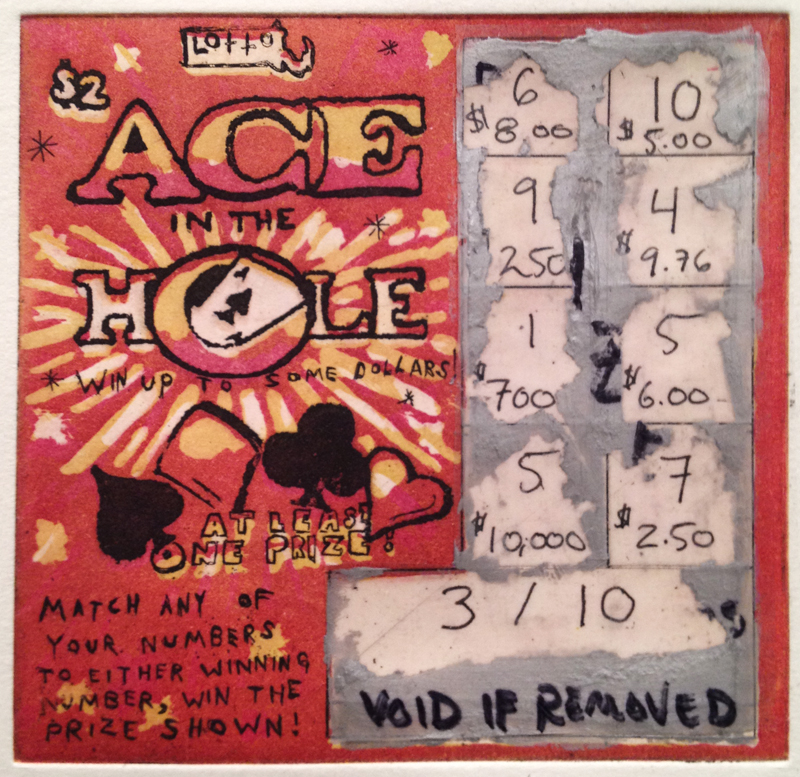 LOTTO
$2
ACE
IN THE
HOLE
WIN UP TO SOME DOLLARS!
AT LEAST
ONE PRIZE!
MATCH ANY OF
YOUR NUMBERS
TO EITHER WINNING
NUMBER, WIN THE
PRIZE SHOWN!
6
$8.00
10
$5.00
9
250
4
$9.76
1
$700
5
$6.00
5
$10,000
7
$2.50
3 / 10
VOID IF REMOVED